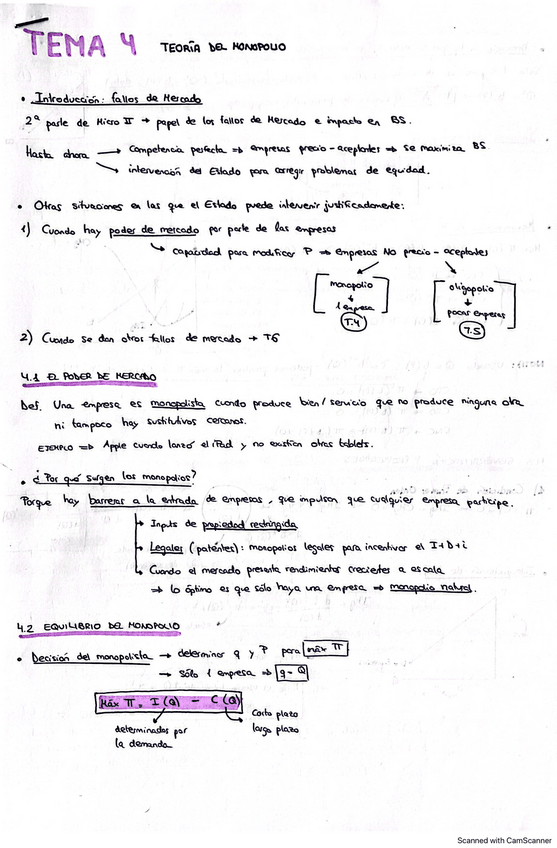 TEMA 4 TEORÍA DEL MONOPOLIO
• Introducción: fallos de Mercado
2ª parte de Micro II → papel de los fallos de Mercado e impacto en BS.
Hasta ahora → Competencia perfecta ⇒ empresas precio-aceptantes ⇒ se maximiza BS
→ intervención del Estado para corregir problemas de equidad.
• Otras situaciones en las que el Estado puede intervenir justificadamente:
1) Cuando hay poderes de mercado por parte de las empresas
↳ capacidad para modificar P ⇒ empresas NO precio-aceptantes
monopolio ↓ 1 empresa T.4
oligopolio ↓ pocas empresas T.5
2) Cuando se dan otros fallos de mercado → T6
4.1 EL PODER DE MERCADO
Def. Una empresa es monopolista cuando produce bien/servicio que no produce ninguna otra
ni tampoco hay sustitutivos cercanos.
EJEMPLO ⇒ Apple cuando lanzó el iPad y no existían otras tablets.
• ¿Por qué surgen los monopolios?
Porque hay barreras a la entrada de empresas, que impulsan que cualquier empresa participe.
→ Inputs de propiedad restringida
→ Legales (patentes): monopolios legales para incentivar el I+D+i
↳ Cuando el mercado presenta rendimientos crecientes a escala
⇒ lo óptimo es que sólo haya una empresa ⇒ monopolio natural.
4.2 EQUILIBRIO DEL MONOPOLIO
• Decisión del monopolista → determinar q y P para máx π
→ Sólo 1 empresa ⇒ q = Q
Máx π = I(Q) - C(Q)
determinados por
la demanda
Corto plazo
largo plazo
Scanned with CamScanner